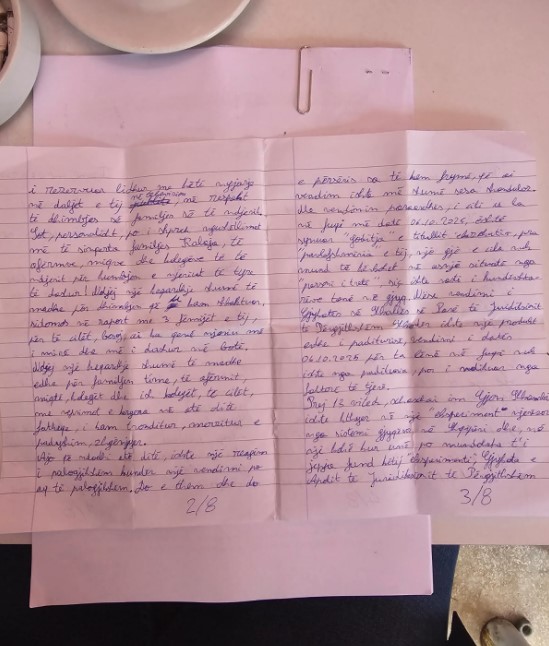 i rezervuar lidhur me këtë ngjarje
në daljet e tij në respekt
të dhimbjes së familjes së të ndjerit.
Sot, personalisht, po i shpreh ngushëllimet
më të sinqerta familjes Kalaja, të
afërmve, miqve dhe kolegëve të të
ndjerit për humbjen e njeriut të tyre
të dashur! Ndjej një keqardhje shumë të
madhe për dhimbjen që i kam shkaktuar,
sidomos në raport me 3 fëmijët e tij,
për të cilët, besoj, ai ka qenë njeriu më
i mirë dhe më i dashur në botë.
Ndjej një keqardhje shumë të madhe
edhe për familjen time, të afërmit,
miqtë, kolegët dhe ish kolegët, të cilët,
me veprimet e kryera në atë ditë
fatkeqe, i kam tronditur, mërzitur e
padyshim, zhgënjyer.
Ajo që ndodhi atë ditë, është një reagim
i paligjshëm kundër një vendimi po
aq të paligjshëm. Do e them dhe do
2/8
e përsëris sa të kem frymë, që ai
vendim ishte më shumë sesa skandaloz.
Dhe vendimin paraardhës, i cili u la
në fuqi më datë 06.10.2025, është
rrjedhojë, pra
e tij, një gjë e cila nuk
mund të ndodhë në asnjë situatë nga
"personi i tretë", siç ishte rasti i kundërshta-
rëve tanë në gjyq. Nëse vendimi i
Gjykatës së Shkallës së Parë të Juridiksionit
të Përgjithshëm ishte një produkt
edhe i paditurisë, vendimi i datës
06.10.2025 për ta lënë në fuqi nuk
ishte nga padituria, por i motivuar nga
faktorë të tjerë.
Prej 13 vitesh,
është kthyer në një "eksperiment" njerëzor
nga sistemi gjyqësor në Shqipëri dhe, në
një kohë kur unë po mundohesha t'i
jepja fund këtij "eksperimenti", Gjykata e
Apelit të Juridiksionit të Përgjithshëm
3/8